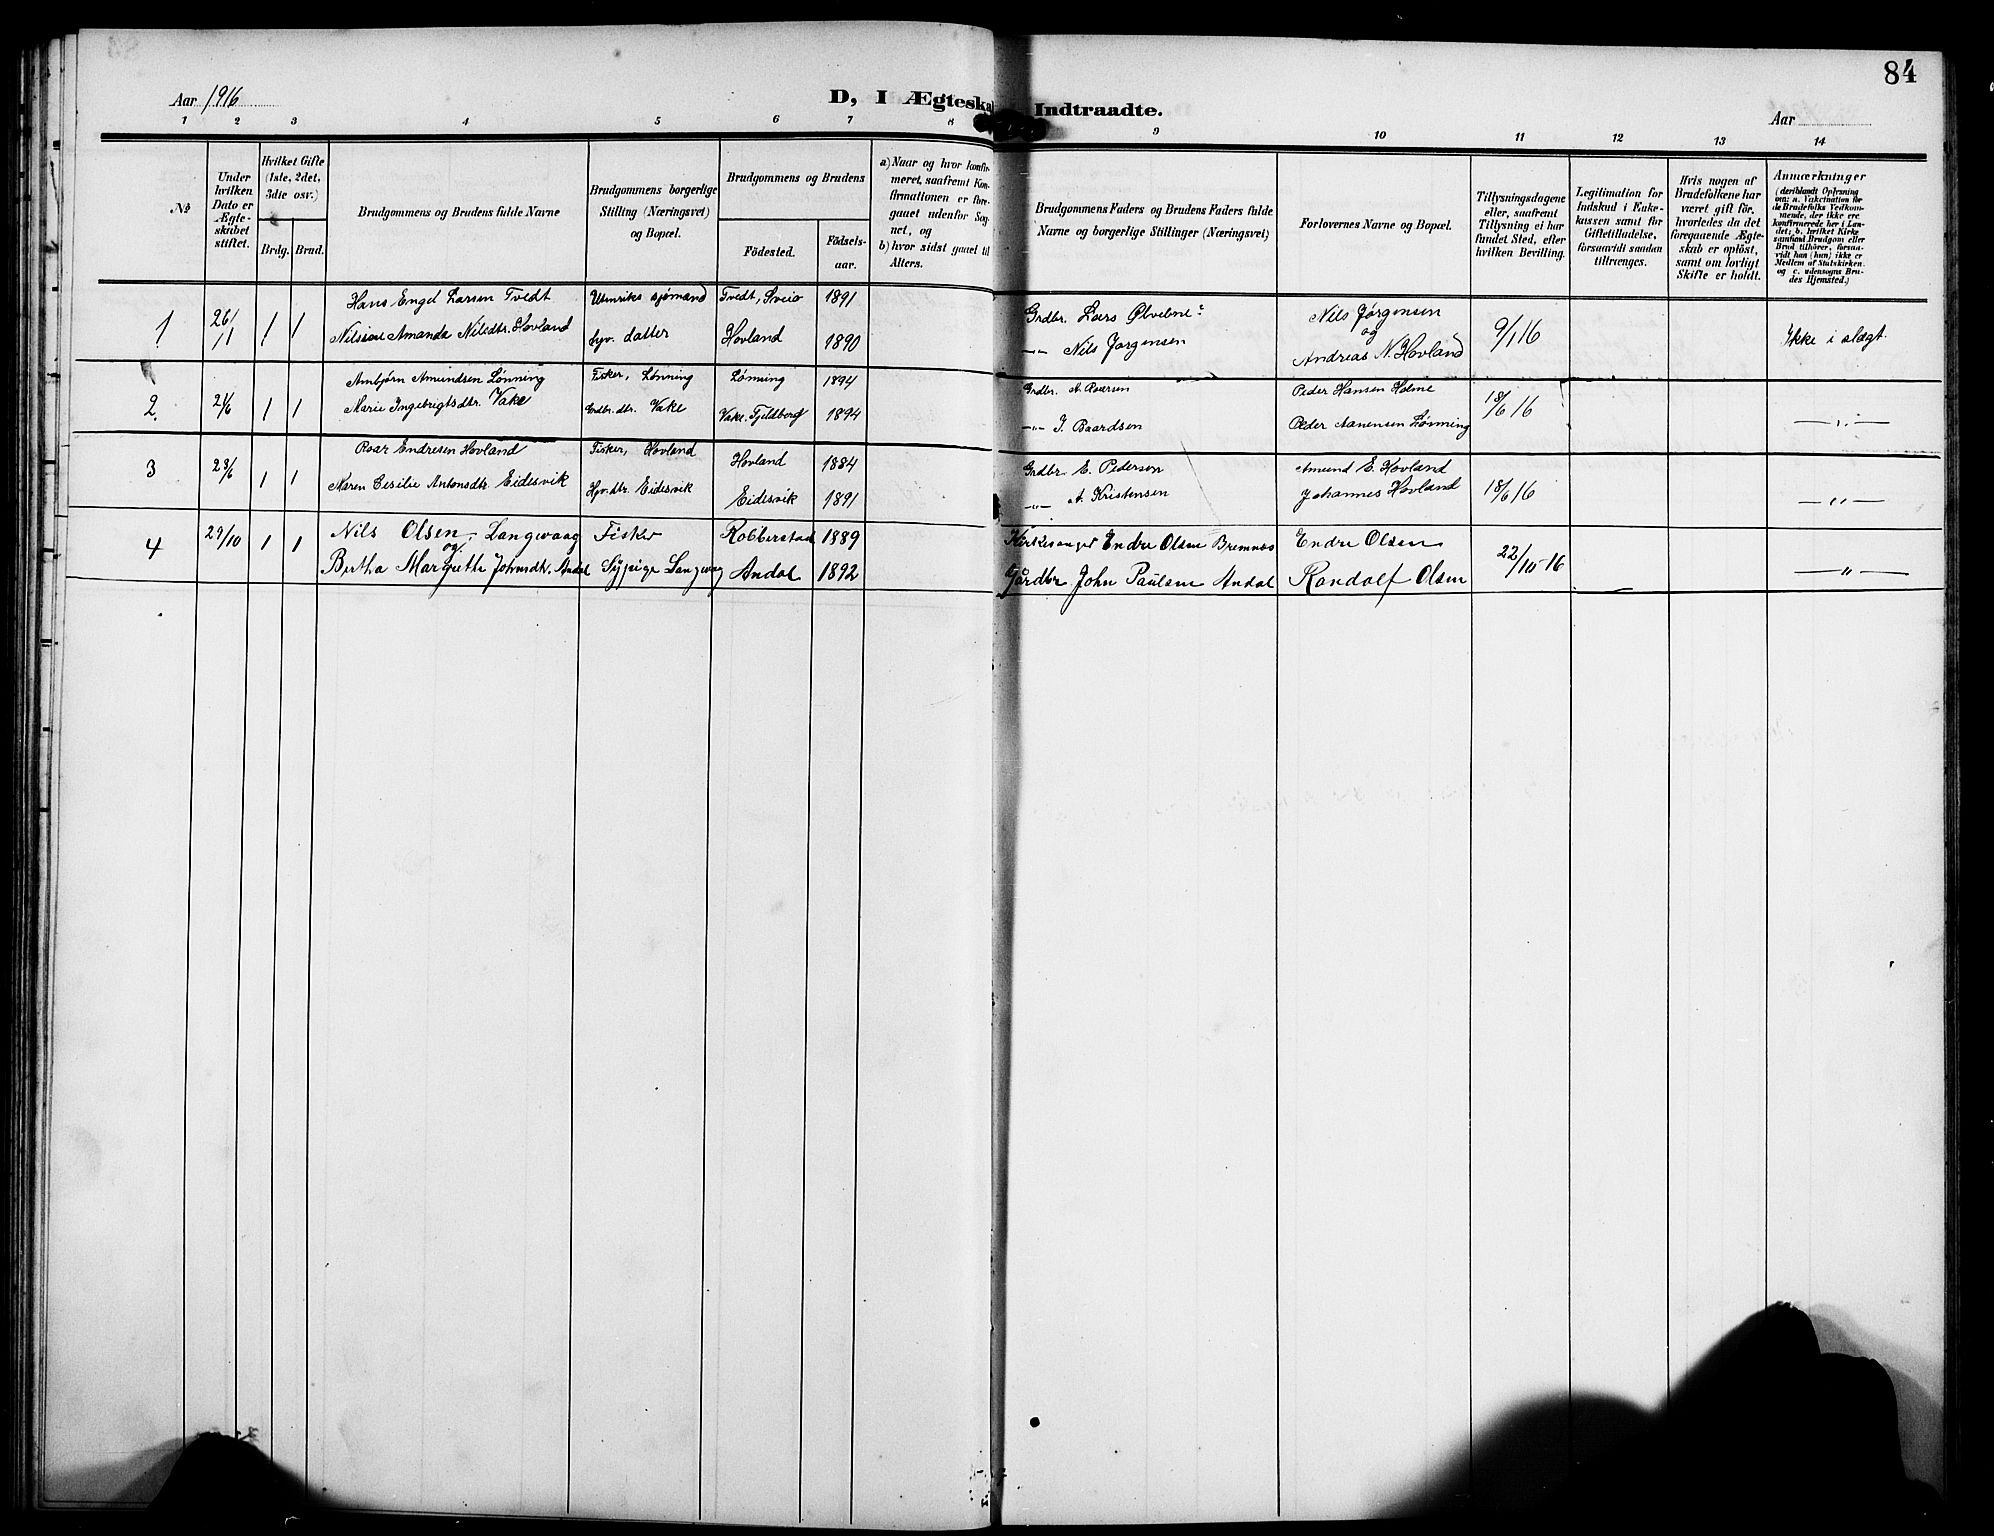 84
Aar 1916
D, I Ægteska Indtraadte.
Aar
1 2 3 4 5 6 7 8 9 10 11 12 13 14
№
Under hvilken Dato er Ægteskabet stiftet.
Hvilket Gifte (1ste, 2det, 3die osv.)
Brdg. Brud.
Brudgommens og Brudens fulde Navne
Brudgommens borgerlige Stilling (Næringsvei) og Bopæl.
Brudgommens og Brudens
Födested.
Födselsaar.
a) Naar og hvor konfirmeret, saafremt Konfirmationen er foregaaet udenfor Sognet, og
b) hvor sidst gaaet til Alters.
Brudgommens Faders og Brudens Faders fulde Navne og borgerlige Stillinger (Næringsvei)
Forlovernes Navne og Bopæl.
Tillysningsdagene eller, saafremt Tillysning ei har fundet Sted, efter hvilken Bevilling.
Legitimation for Indskud i Enkekassen samt for Giftetilladelse, forsaavidt saadan tiltrænges.
Hvis nogen af Brudefolkene har været gift för, hvorledes da det foregaaende Ægteskab er oplöst, samt om lovligt Skifte er holdt.
Anmærkninger
(deriblandt Oplysning om: a. Vakcination for de Brudefolks Vedkommende, der ikke ere konfirmerede her i Landet; b. hvilket Kirkesamfund Brudgom eller Brud tilhörer, forsaavidt han (hun) ikke er Medlem af Statskirken. og c. udensogns Brudes Hjemsted.)
1 26/1 1 1
Hans Engel Larsen Tvedt Utenriks sjømand Tvedt, Sveio 1891 Grdbr. Lars Nils Jørgensen
og
Amanda Nilsdtr. Hovland datter Hovland 1890 -"- Nils Jørgensen Andreas N. Hovland 9/1 16 Ikke i slægt.
2 1 1
Amundsen Lønning Fisker, Lønning Lønning 1894 Grdbr. Peder Hansen Holme
Marie Ingebrigtsdtr. Vake Grdbr. dtr. Vake Vake. Fjeldberg 1894 -"- I. Baardsen Peder Lønning 18/6 16 -"-
3 23/6 1 1
Roar Endresen Hovland Fisker, Hovland Hovland 1884 Grdbr. E. Pedersen Amund E. Hovland
Maren Cecilie Antonsdtr. Eidesvik dtr. Eidesvik Eidesvik 1891 " A. Kristensen Johannes Hovland 18/6 16 -"-
4 29/10 1 1
Nils Olsen Langevaag Fisker Robberstad 1889 Kirkesanger Endre Olsen Bremnes Endre Olsen
og
Bertha Margrethe Johnsdtr. Andal Sypige Langevaag Andal 1892 Gårdbr John Paulsen Andal Randolf Olsen 22/10-16 -"-